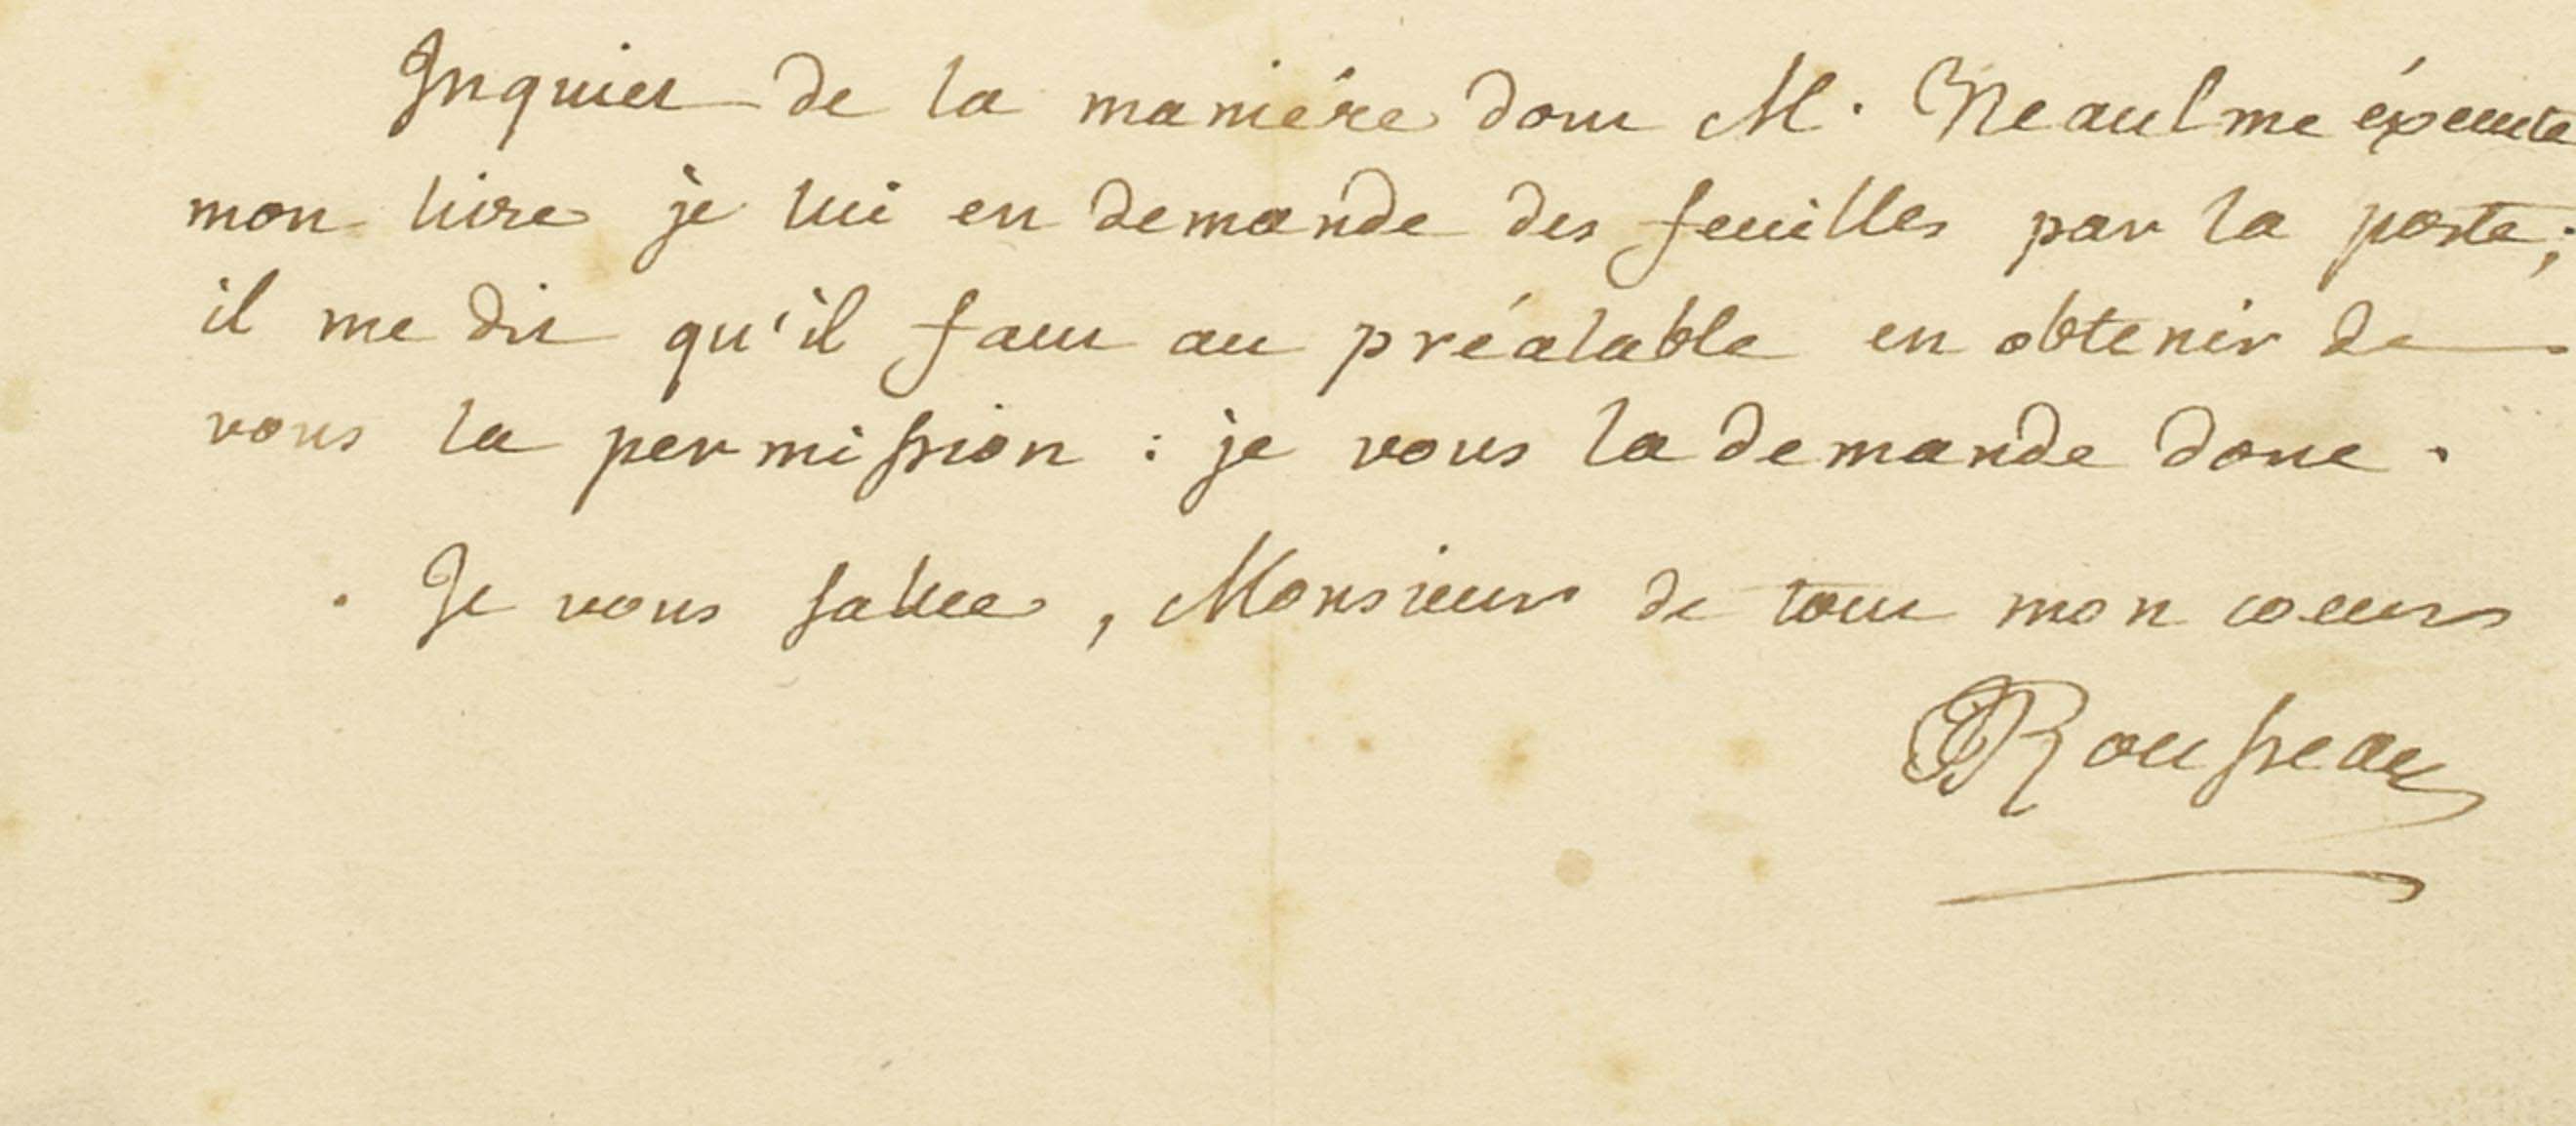 Inquiet de la maniére dont M. Neaulme éxecute
mon livre je lui en demande des feuilles par la poste;
il me dit qu'il faut au préalable en obtenir de
vous la permission : je vous la demande donc.
Je vous salue, Monsieur de tout mon coeur
JJRousseau